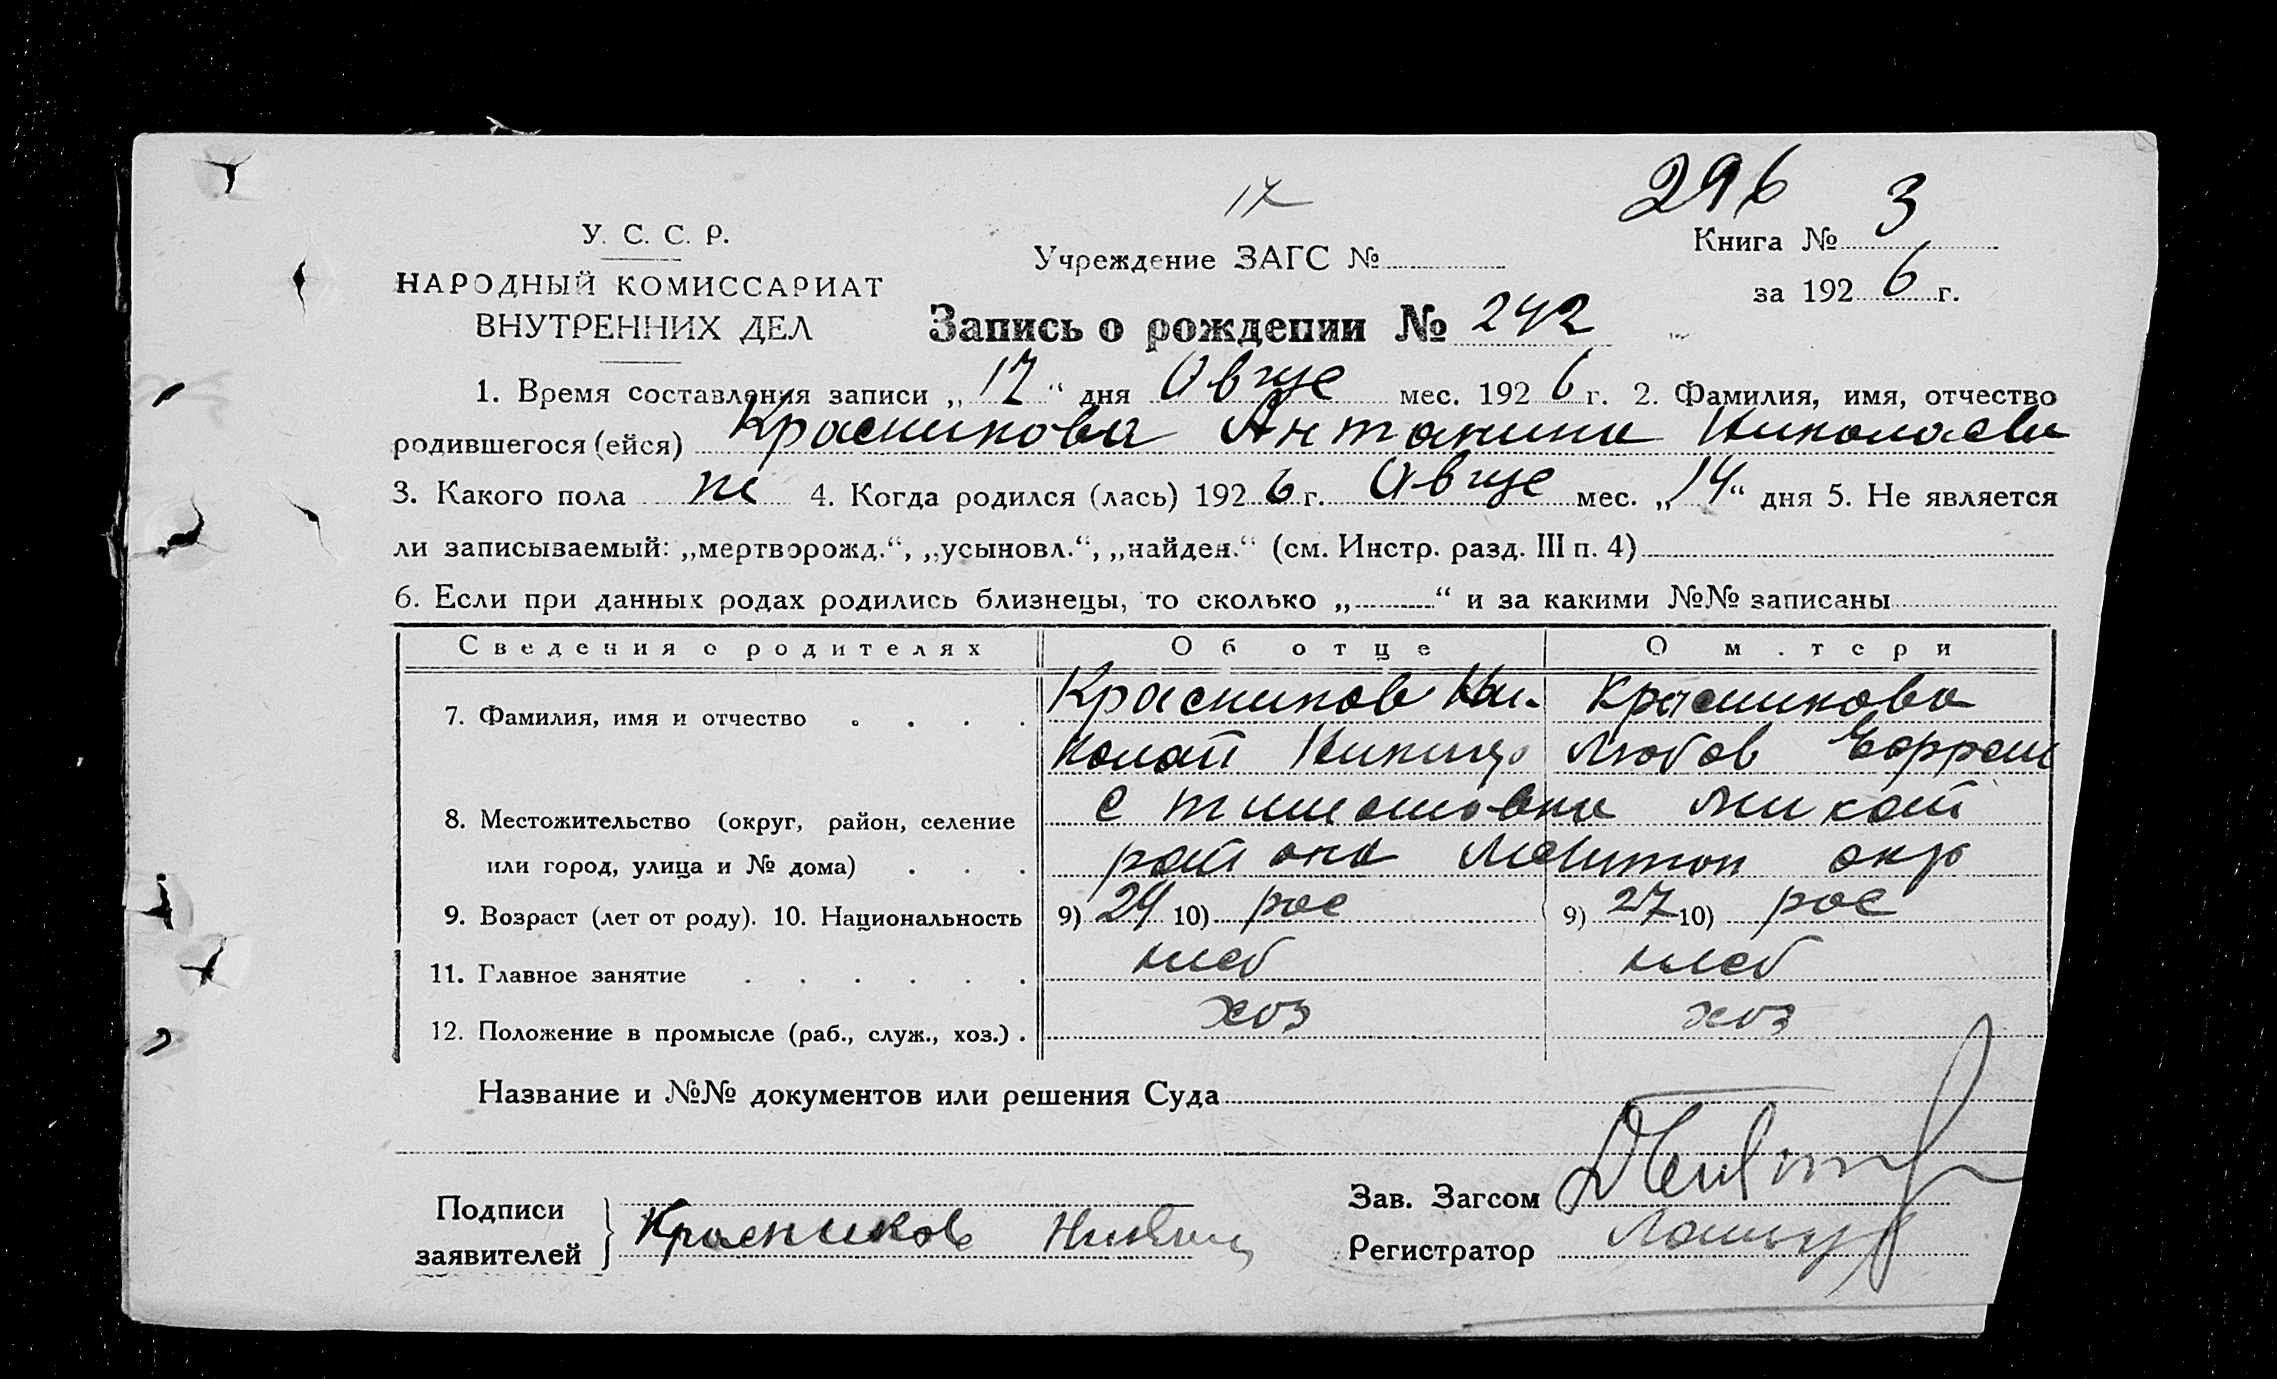 17
296
У. С. С. Р.
НАРОДНЫЙ КОМИССАРИАТ
ВНУТРЕННИХ ДЕЛ
Учреждение ЗАГС №
Книга № 3
за 1926 г.
Запись о рождении № 242
1. Время составления записи „17“ дня Авгус мес. 1926 г. 2. Фамилия, имя, отчество
родившегося (ейся) Красникова Антонина Николаевн
3. Какого пола же 4. Когда родился (лась) 1926 г. Авгус мес. „14“ дня 5. Не является
ли записываемый: „мертворожд.“, „усыновл.“, „найден.“ (см. Инстр. разд. III п. 4)
6. Если при данных родах родились близнецы, то сколько „ “ и за какими №№ записаны
Сведения о родителях Об отце О м.тери
7. Фамилия, имя и отчество Красников Ни- Красникова
колай Никиф Любов Ефрем
8. Местожительство (округ, район, селение с Тимошовка Михай
или город, улица и № дома) района Мелитоп окр
9. Возраст (лет от роду). 10. Национальность 9) 24 10) рос 9) 27 10) рос
11. Главное занятие хлеб хлеб
12. Положение в промысле (раб., служ., хоз.) хоз хоз
Название и №№ документов или решения Суда
Подписи
заявителей Красников
Зав. Загсом
Регистратор